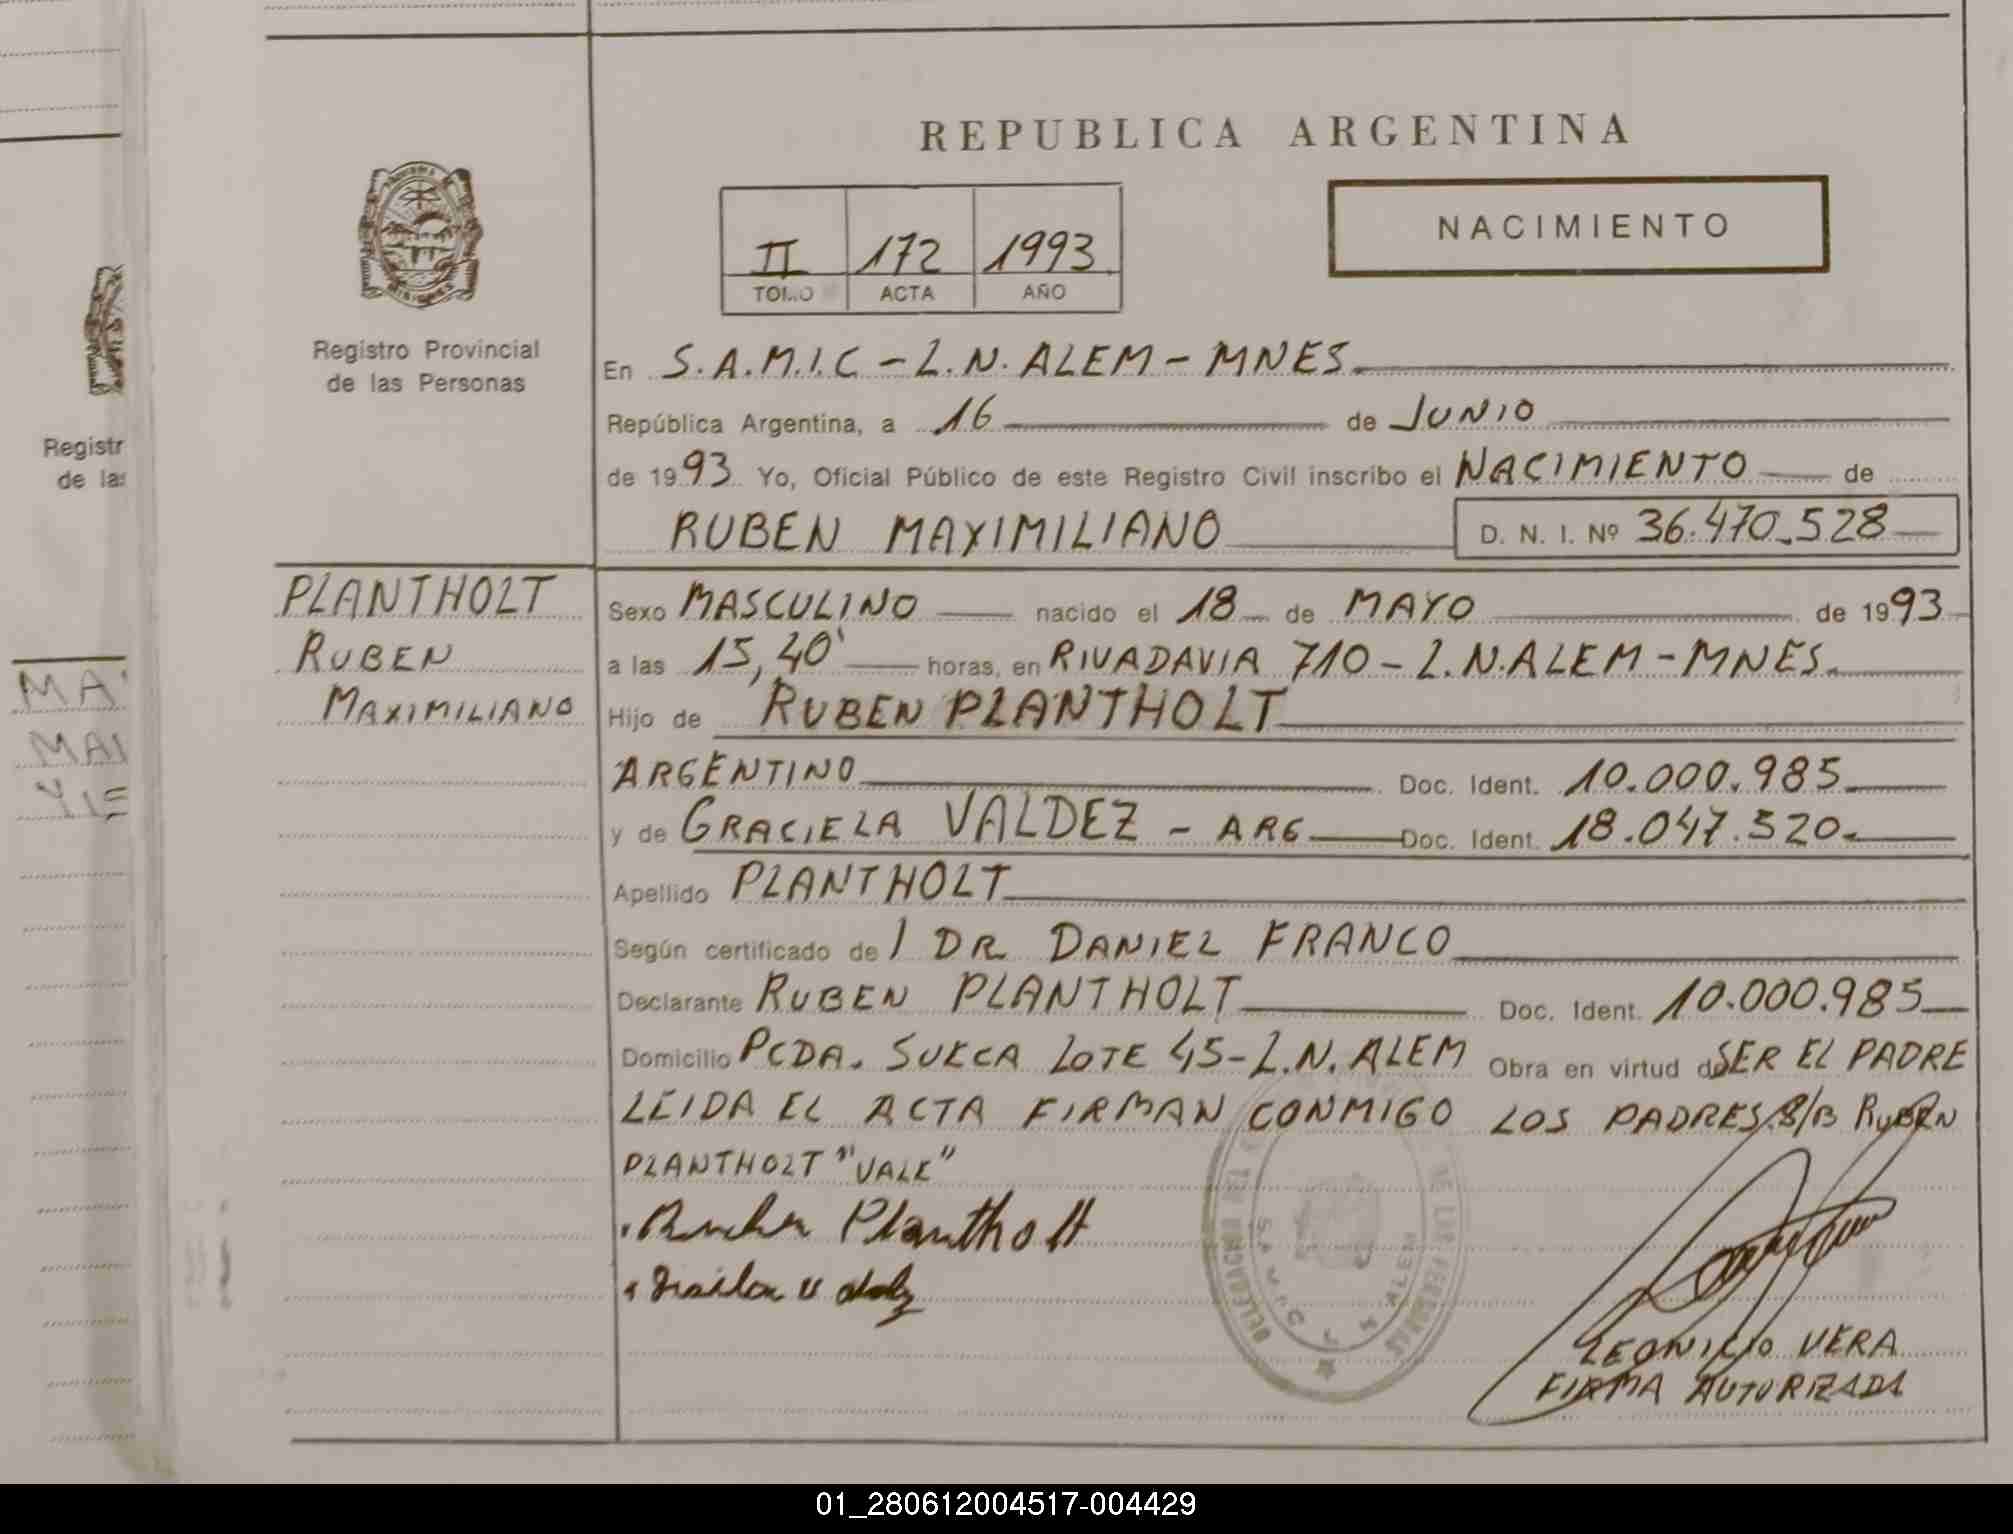 REPUBLICA ARGENTINA
NACIMIENTO
II 172 1993
TOMO ACTA AÑO
Registro Provincial
de las Personas
Registr
de las
En S.A.M.I.C - L.N. ALEM - MNES.
República Argentina, a 16 de JUNIO
de 1993 Yo, Oficial Público de este Registro Civil inscribo el NACIMIENTO de
RUBEN MAXIMILIANO D. N. I. Nº 36.470.528
PLANTHOLT
RUBEN
MAXIMILIANO
MA
MAI
YIE
Sexo MASCULINO nacido el 18 de MAYO de 1993
a las 15,40' horas, en RIVADAVIA 710 - L.N.ALEM - MNES.
Hijo de RUBEN PLANTHOLT
ARGENTINO Doc. Ident. 10.000.985
y de GRACIELA VALDEZ - ARG Doc. Ident. 18.047.520.
Apellido PLANTHOLT
Según certificado de / DR DANIEL FRANCO
Declarante RUBEN PLANTHOLT Doc. Ident. 10.000.985
Domicilio PCDA. SUECA LOTE 45 - L.N. ALEM Obra en virtud de SER EL PADRE
LEIDA EL ACTA FIRMAN CONMIGO LOS PADRES. S/B RUBEN
PLANTHOLT "VALE"
Ruben Plantholt
LEONICIO VERA
FIRMA AUTORIZADA
DELEGACION DE LAS PERSONAS
S.A.M.I.C L N ALEM
01_280612004517-004429